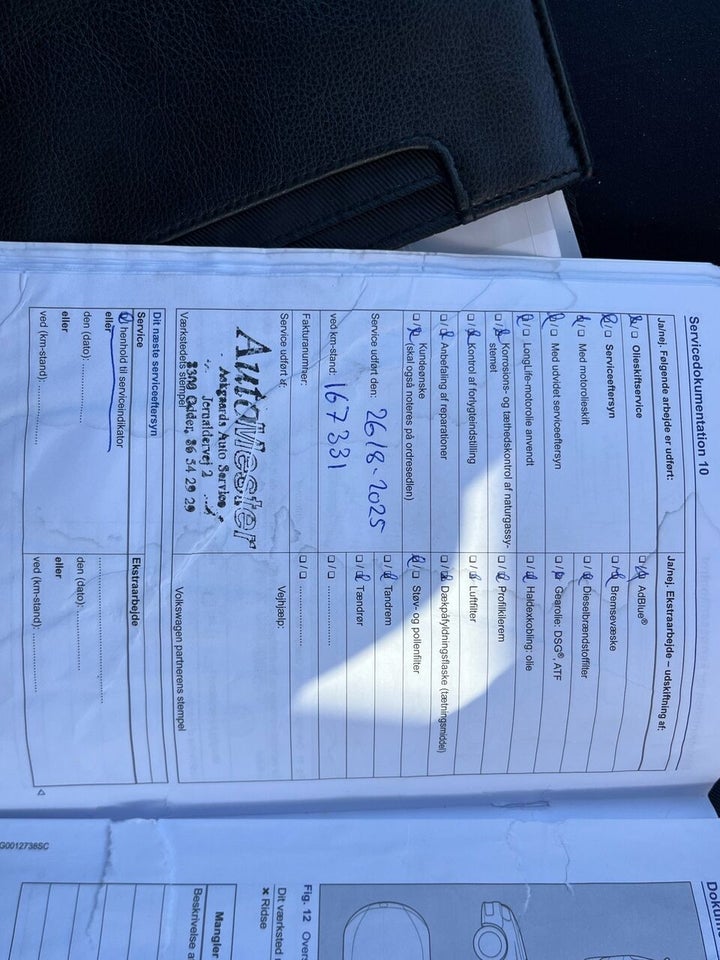 Servicedokumentation 10
Ja/nej. Følgende arbejde er udført:
☐/☐ Olieskiftservice
☐/☐ Serviceeftersyn
☐/☐ Med motorolieskift
☐/☐ Med udvidet serviceeftersyn
☐/☐ LongLife-motorolie anvendt
☐/☐ Korrosions- og tæthedskontrol af naturgassy-
stemet
☐/☐ Kontrol af forlygteindstilling
☐/☐ Anbefaling af reparationer
☐/☐ Kundeønske
(skal også noteres på ordresedlen)
Service udført den: 26/8-2025
ved km-stand: 167331
Fakturanummer:
Service udført af:
AutoMester
Askgaards Auto Service
8300 Odder, 86 54 29 29
Værkstedets stempel
Ja/nej. Ekstraarbejde – udskiftning af:
☐/☐ AdBlue®
☐/☐ Bremsevæske
☐/☐ Dieselbrændstoffilter
☐/☐ Gearolie: DSG®, ATF
☐/☐ Haldexkobling: olie
☐/☐ Profilkilerem
☐/☐ Luftfilter
☐/☐ Dækpåfyldningsflaske (tætningsmiddel)
☐/☐ Støv- og pollenfilter
☐/☐ Tandrem
☐/☐ Tændrør
☐/☐ ....................
☐/☐ ....................
Vejhjælp:
Volkswagen partnerens stempel
Dit næste serviceeftersyn
Service
I henhold til serviceindikator
eller
den (dato): ....................
eller
ved (km-stand): ....................
Ekstraarbejde
....................
den (dato): ....................
eller
ved (km-stand): ....................
G0012738SC
Fig. 12
Dit værksted
× Ridse
Mangler
Beskrivelse